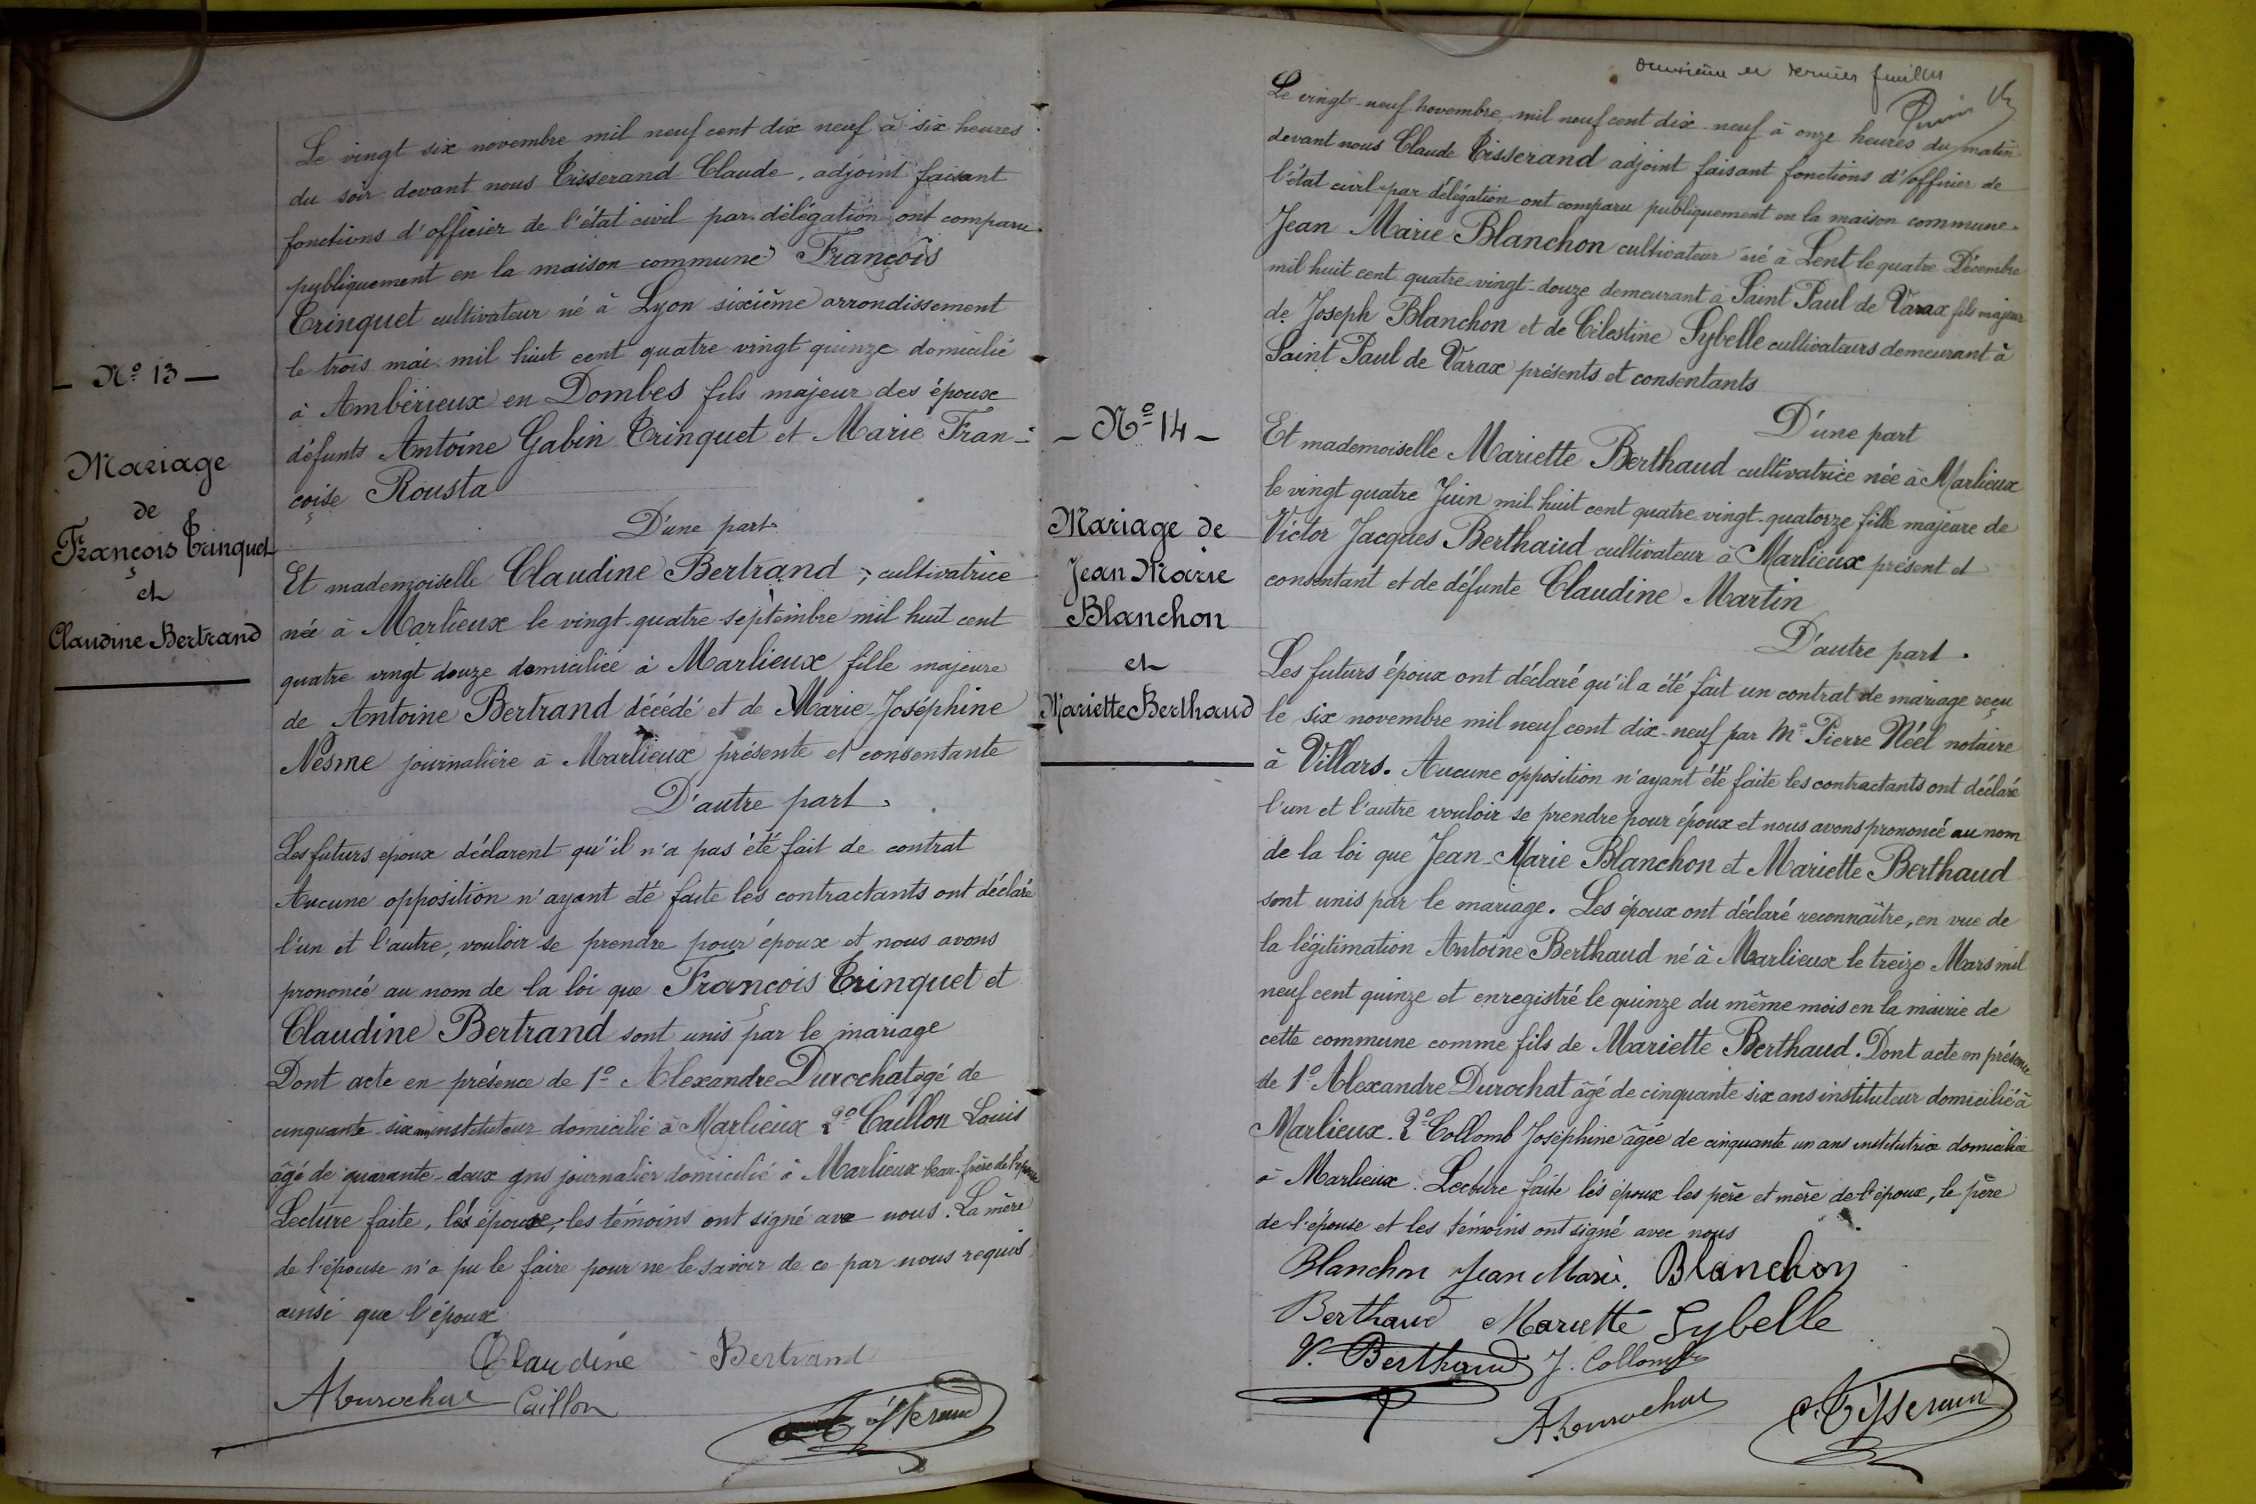 — Nº 13 —
Mariage
de
François Trinquet
et
Claudine Bertrand
Le vingt six novembre mil neuf cent dix neuf à six heures
du soir devant nous Tisserand Claude, adjoint faisant
fonctions d'officier de l'état civil par délégation ont comparu
publiquement en la maison commune François
Trinquet cultivateur né à Lyon sixième arrondissement
le trois mai mil huit cent quatre vingt quinze domicilié
à Ambérieux en Dombes fils majeur des époux
défunts Antoine Gabin Trinquet et Marie Fran-
çoise Rousta
D'une part
Et mademoiselle Claudine Bertrand, cultivatrice
née à Marlieux le vingt quatre septembre mil huit cent
quatre vingt douze domiciliée à Marlieux fille majeure
de Antoine Bertrand décédé et de Marie-Joséphine
Nesme journalière à Marlieux présente et consentante
D'autre part.
Les futurs époux déclarent qu'il n'a pas été fait de contrat
Aucune opposition n'ayant été faite les contractants ont déclaré
l'un et l'autre, vouloir se prendre pour époux et nous avons
prononcé au nom de la loi que François Trinquet et
Claudine Bertrand sont unis par le mariage
Dont acte en présence de 1º Alexandre Durochat âgé de
cinquante-six ans instituteur domicilié à Marlieux 2º Caillon Louis
âgé de quarante-deux ans journalier domicilié à Marlieux beau-frère de l'épouse
Lecture faite, les épouse, les témoins ont signé avec nous. La mère
de l'épouse n'a pu le faire pour ne le savoir de ce par nous requis
ainsi que l'époux
Claudine Bertrand
ADurochat Caillon
Tisserand
deuxième et dernier feuillet
— Nº 14 —
Mariage de
Jean Marie
Blanchon
et
Mariette Berthaud
Le vingt-neuf novembre mil neuf cent dix-neuf à onze heures du matin
devant nous Claude Tisserand adjoint faisant fonctions d'officier de
l'état civil par délégation ont comparu publiquement en la maison commune
Jean Marie Blanchon cultivateur né à Lent le quatre Décembre
mil huit cent quatre-vingt-douze demeurant à Saint Paul de Varax fils majeur
de Joseph Blanchon et de Célestine Sybelle cultivateurs demeurant à
Saint Paul de Varax présents et consentants
D'une part
Et mademoiselle Mariette Berthaud cultivatrice née à Marlieux
le vingt quatre Juin mil huit cent quatre vingt-quatorze fille majeure de
Victor Jacques Berthaud cultivateur à Marlieux présent et
consentant et de défunte Claudine Martin
D'autre part.
Les futurs époux ont déclaré qu'il a été fait un contrat de mariage reçu
le six novembre mil neuf cent dix-neuf par Me Pierre Néel notaire
à Villars. Aucune opposition n'ayant été faite les contractants ont déclaré
l'un et l'autre vouloir se prendre pour époux et nous avons prononcé au nom
de la loi que Jean-Marie Blanchon et Mariette Berthaud
sont unis par le mariage. Les époux ont déclaré reconnaître, en vue de
la légitimation Antoine Berthaud né à Marlieux le treize Mars mil
neuf cent quinze et enregistré le quinze du même mois en la mairie de
cette commune comme fils de Mariette Berthaud. Dont acte en présence
de 1º Alexandre Durochat âgé de cinquante six ans instituteur domicilié à
Marlieux. 2º Collomb Joséphine âgée de cinquante un ans institutrice domiciliée
à Marlieux. Lecture faite les époux les père et mère de l'époux, le père
de l'épouse et les témoins ont signé avec nous
Blanchon Jean Marie. Blanchon
Berthaud Mariette Sybelle
V. Berthaud J. Collomb
ADurochat C. Tisserand